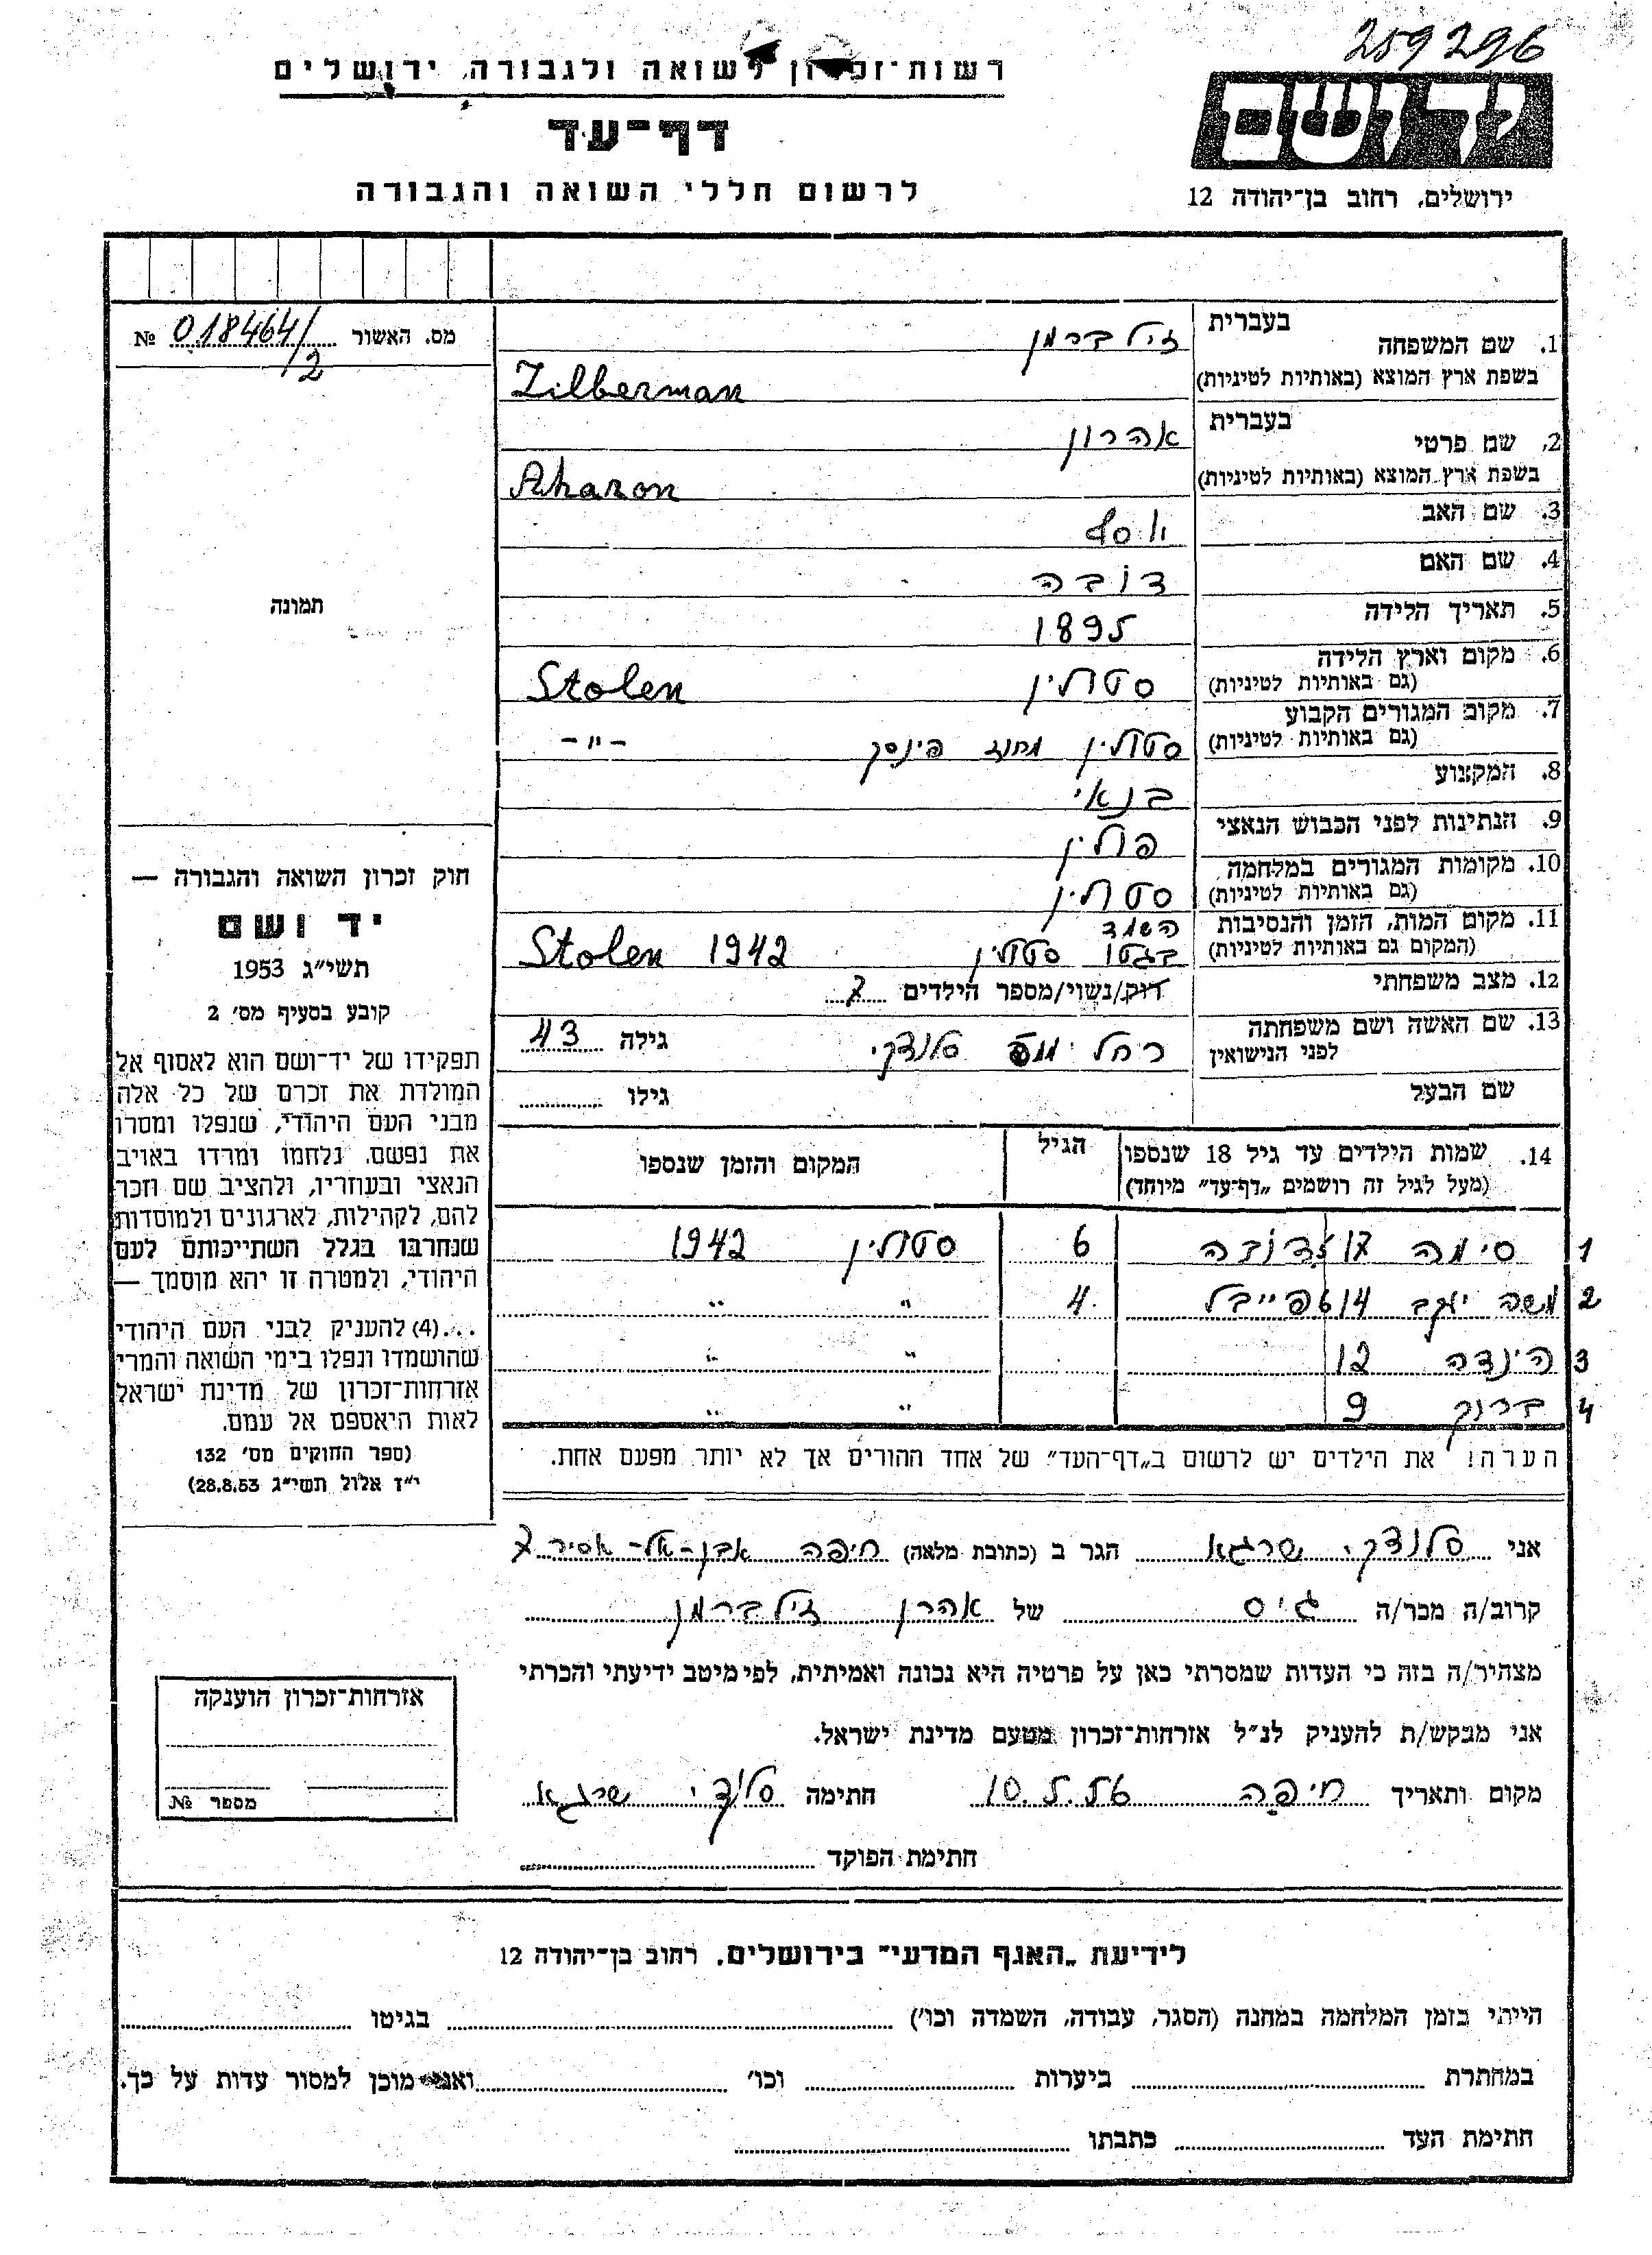 259296
רשות־זכרון לשואה ולגבורה, ירושלים
דף־עד
לרשום חללי השואה והגבורה
יד ושם
ירושלים, רחוב בן־יהודה 12
מס. האשור 018464/2 №
1. שם המשפחה בעברית זילברמן
בשפת ארץ המוצא (באותיות לטיניות) Zilberman
2. שם פרטי בעברית אהרון
בשפת ארץ המוצא (באותיות לטיניות) Aharon
3. שם האב יוסף
4. שם האם דובה
5. תאריך הלידה 1895
6. מקום וארץ הלידה (גם באותיות לטיניות) סטולין Stolen
7. מקום המגורים הקבוע (גם באותיות לטיניות) סטולין מחוז פינסק -"-
8. המקצוע בנאי
9. הנתינות לפני הכבוש הנאצי פולין
10. מקומות המגורים במלחמה (גם באותיות לטיניות) סטולין
11. מקום המות, הזמן והנסיבות (המקום גם באותיות לטיניות) השמד בגטו סטולין Stolen 1942
12. מצב משפחתי רוק/נשוי/מספר הילדים 7
13. שם האשה ושם משפחתה לפני הנישואין רחל סלנדקי גילה 43
שם הבעל גילו
תמונה
חוק זכרון השואה והגבורה —
יד ושם
תשי"ג 1953
קובע בסעיף מס' 2
תפקידו של יד־ושם הוא לאסוף אל
המולדת את זכרם של כל אלה
מבני העם היהודי, שנפלו ומסרו
את נפשם, נלחמו ומרדו באויב
הנאצי ובעוזריו, ולהציב שם וזכר
להם, לקהילות, לארגונים ולמוסדות
שנחרבו בגלל השתייכותם לעם
היהודי, ולמטרה זו יהא מוסמך —
...(4) להעניק לבני העם היהודי
שהושמדו ונפלו בימי השואה והמרי
אזרחות־זכרון של מדינת ישראל
לאות היאספם אל עמם.
(ספר החוקים מס' 132
י"ז אלול תשי"ג 28.8.53)
14. שמות הילדים עד גיל 18 שנספו הגיל המקום והזמן שנספו
(מעל לגיל זה רושמים „דף־עד" מיוחד)
1 סימה 17 דובה 6 סטולין 1942
2 משה יעקב 14 פייבל 4 " "
3 הינדה 12 " "
4 ברוך 9 " "
הערה! את הילדים יש לרשום ב„דף־העד" של אחד ההורים אך לא יותר מפעם אחת.
אני סלנדקי שרגא הגר ב (כתובת מלאה) חיפה אבן-אל-אסיר 7
קרוב/ה מכר/ה גיס של אהרן זילברמן
מצהיר/ה בזה כי העדות שמסרתי כאן על פרטיה היא נכונה ואמיתית, לפי מיטב ידיעתי והכרתי
אני מבקש/ת להעניק לנ"ל אזרחות־זכרון מטעם מדינת ישראל.
מקום ותאריך חיפה 10.5.56 חתימה סלנדקי שרגא
חתימת הפוקד
אזרחות־זכרון הוענקה
מספר №
לידיעת „האגף המדעי" בירושלים, רחוב בן־יהודה 12
הייתי בזמן המלחמה במחנה (הסגר, עבודה, השמדה וכו') בגיטו
במחתרת ביערות וכו' ואני מוכן למסור עדות על כך.
חתימת העד כתבתו